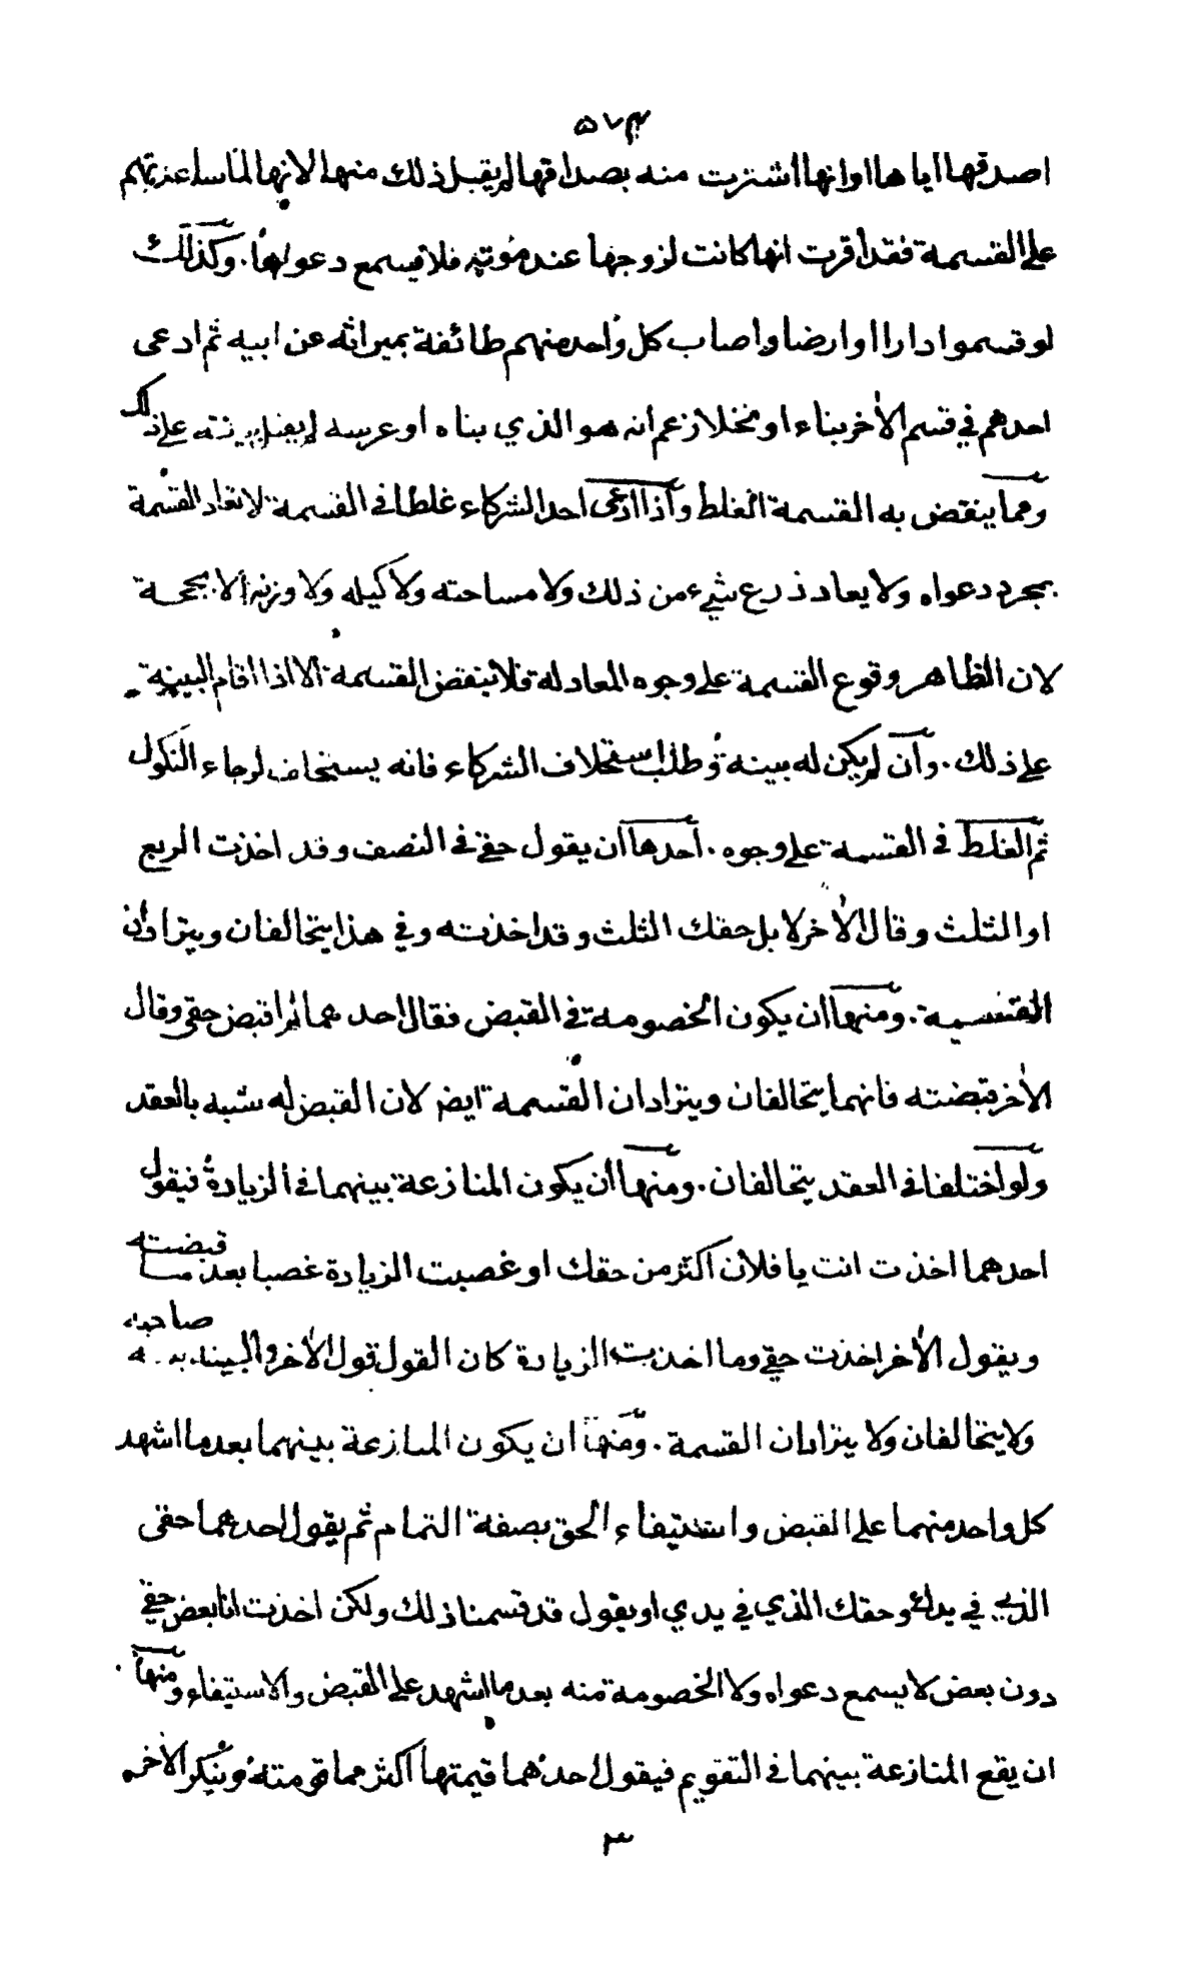 ٥٧٣
اصدقها اياها او انها اشترت منه بصداقها لم يقبل ذلك منها لانها لما ساعدتهم
على القسمة فقد اقرت انها كانت لزوجها عند موته فلا يسمع دعواها. وكذلك
لو قسموا دارا او ارضا واصاب كل واحد منهم طائفة بميراثه عن ابيه ثم ادعى
احدهم في قسم الأخر بناء او نخلا زعم انه هو الذي بناه او غرسه لم يقبل بينته على ذلك
ومما ينقض به القسمة الغلط واذا ادعى احد الشركاء غلطا في القسمة لا تعاد القسمة
بمجرد دعواه ولا يعاد ذرع شيء من ذلك ولا مساحته ولا كيله ولا وزنه الا بحجة
لان الظاهر وقوع القسمة على وجوه المعادلة فلا ينقض القسمة الا اذا اقام البينة
على ذلك. وان لم يكن له بينة وطلب استحلاف الشركاء فانه يستحلف لرجاء النكول
ثم الغلط في القسمة على وجوه. احدها ان يقول حقي في النصف وقد اخذت الربع
او الثلث وقال الأخر لا بل حقك الثلث وقد اخذته وفي هذا يتحالفان ويترادان
القسمة. ومنها ان يكون الخصومة في القبض فقال احدهما لم اقبض حقي وقال
الأخر قبضته فانهما يتحالفان ويترادان القسمة ايض لان القبض له شبه بالعقد
ولو اختلفا في العقد يتحالفان. ومنها ان يكون المنازعة بينهما في الزيادة فيقول
احدهما اخذت انت يا فلان اكثر من حقك او غصبت الزيادة غصبا بعد ما قبضته
ويقول الأخر اخذت حقي وما اخذت الزيادة كان القول قول الأخر والبينة بينة صاحبه
ولا يتحالفان ولا يترادان القسمة. ومنها ان يكون المنازعة بينهما بعد ما اشهد
كل واحد منهما على القبض واستيفاء الحق بصفة التمام ثم يقول احدهما حقي
الذي في يدك وحقك الذي في يدي او يقول قد قسمنا ذلك ولكن اخذت انا بعض حقي
دون بعض لا يسمع دعواه ولا الخصومة منه بعد ما اشهد على القبض والاستيفاء ومنها
ان يقع المنازعة بينهما في التقويم فيقول احدهما قيمتها اكثر مما قومته وينكر الأخر
٣